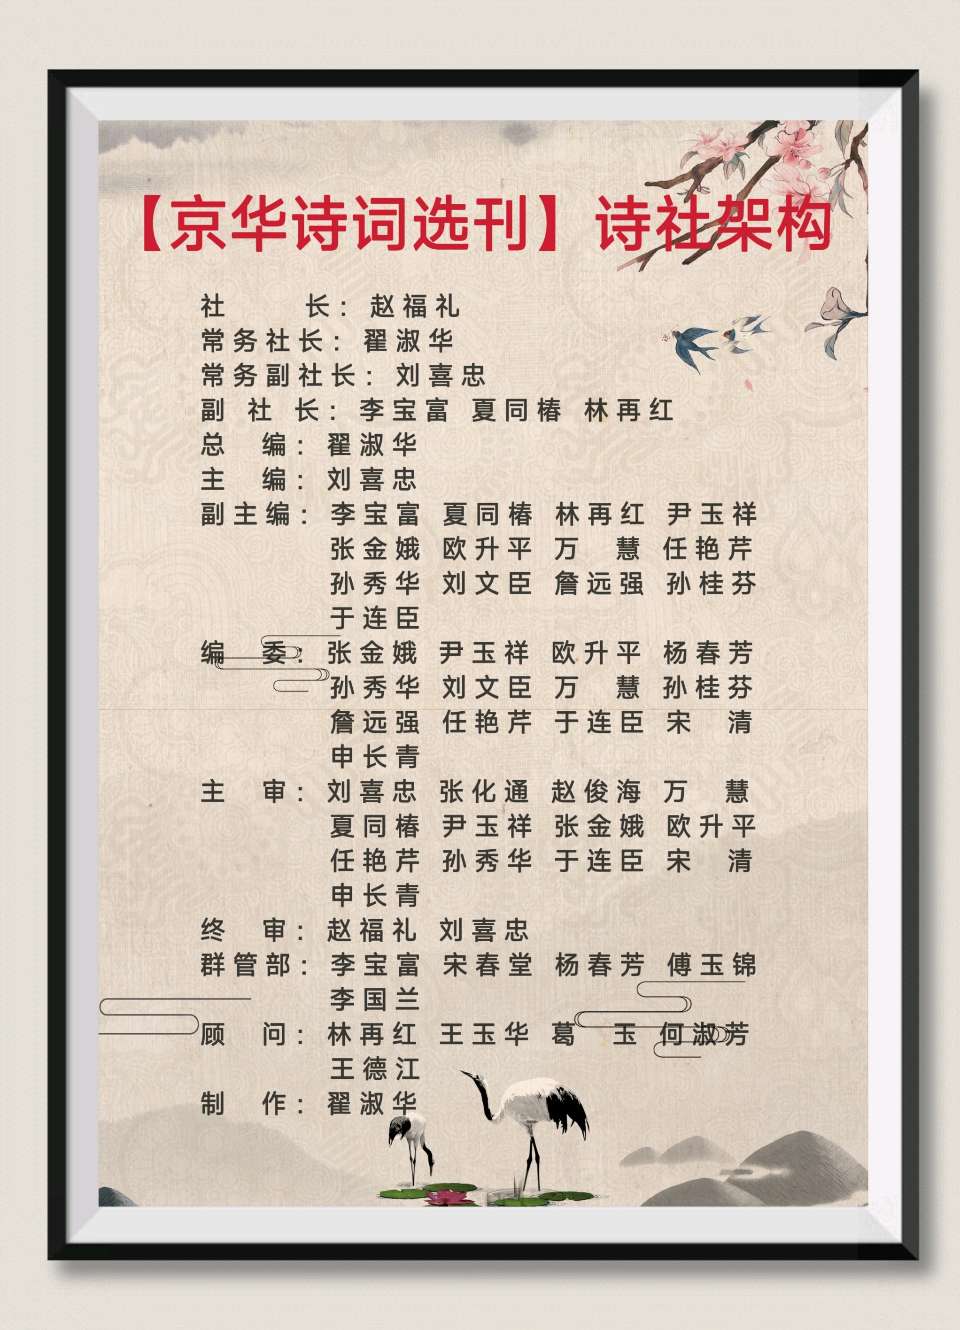 【京华诗词选刊】诗社架构
社 长：赵福礼
常务社长：翟淑华
常务副社长：刘喜忠
副社长：李宝富 夏同椿 林再红
总 编：翟淑华
主 编：刘喜忠
副主编：李宝富 夏同椿 林再红 尹玉祥
张金娥 欧升平 万 慧 任艳芹
孙秀华 刘文臣 詹远强 孙桂芬
于连臣
编 委：张金娥 尹玉祥 欧升平 杨春芳
孙秀华 刘文臣 万 慧 孙桂芬
詹远强 任艳芹 于连臣 宋 清
申长青
主 审：刘喜忠 张化通 赵俊海 万 慧
夏同椿 尹玉祥 张金娥 欧升平
任艳芹 孙秀华 于连臣 宋 清
申长青
终 审：赵福礼 刘喜忠
群管部：李宝富 宋春堂 杨春芳 傅玉锦
李国兰
顾 问：林再红 王玉华 葛 玉 何淑芳
王德江
制 作：翟淑华